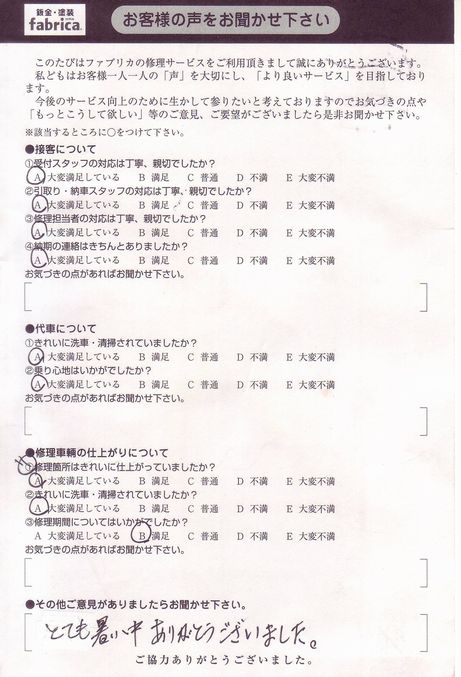 鈑金・塗装
fabrica.
お客様の声をお聞かせ下さい
このたびはファブリカの修理サービスをご利用頂きまして誠にありがとうございます。
私どもはお客様一人一人の「声」を大切にし、「より良いサービス」を目指しており
ます。
今後のサービス向上のために生かして参りたいと考えておりますのでお気づきの点や
「もっとこうして欲しい」等のご意見、ご要望がございましたら是非お聞かせ下さい。
※該当するところに○をつけて下さい。
●接客について
①受付スタッフの対応は丁寧、親切でしたか?
A 大変満足している B 満足 C 普通 D 不満 E 大変不満
②引取り・納車スタッフの対応は丁寧、親切でしたか?
A 大変満足している B 満足 C 普通 D 不満 E 大変不満
③修理担当者の対応は丁寧、親切でしたか?
A 大変満足している B 満足 C 普通 D 不満 E 大変不満
④納期の連絡はきちんとありましたか?
A 大変満足している B 満足 C 普通 D 不満 E 大変不満
お気づきの点があればお聞かせ下さい。
●代車について
①きれいに洗車・清掃されていましたか?
A 大変満足している B 満足 C 普通 D 不満 E 大変不満
②乗り心地はいかがでしたか?
A 大変満足している B 満足 C 普通 D 不満 E 大変不満
お気づきの点があればお聞かせ下さい。
●修理車輌の仕上がりについて
①修理箇所はきれいに仕上がっていましたか?
A 大変満足している B 満足 C 普通 D 不満 E 大変不満
②きれいに洗車・清掃されていましたか?
A 大変満足している B 満足 C 普通 D 不満 E 大変不満
③修理期間についてはいかがでしたか?
A 大変満足している B 満足 C 普通 D 不満 E 大変不満
お気づきの点があればお聞かせ下さい。
●その他ご意見がありましたらお聞かせ下さい。
とても暑い中 ありがとうございました。
ご協力ありがとうございました。